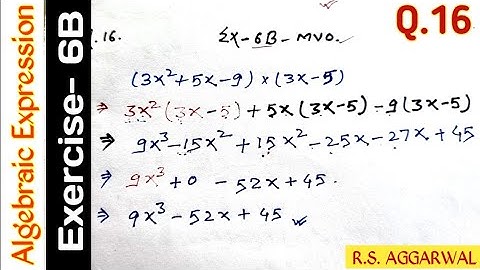 Algebraic Expression
Exercise- 6B
Q.16
.16. Ex-6B-MVO.
(3x²+5x-9) × (3x-5)
⇒ 3x²(3x-5)+5x(3x-5)-9(3x-5)
⇒ 9x³-15x²+15x²-25x-27x+45
⇒ 9x³+0 -52x+45.
⇒ 9x³-52x+45
R.S. AGGARWAL